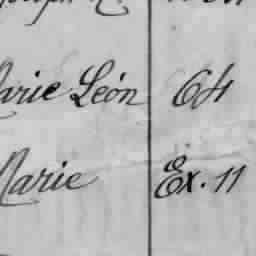 Marie Léon 64
Marie Ex. 11